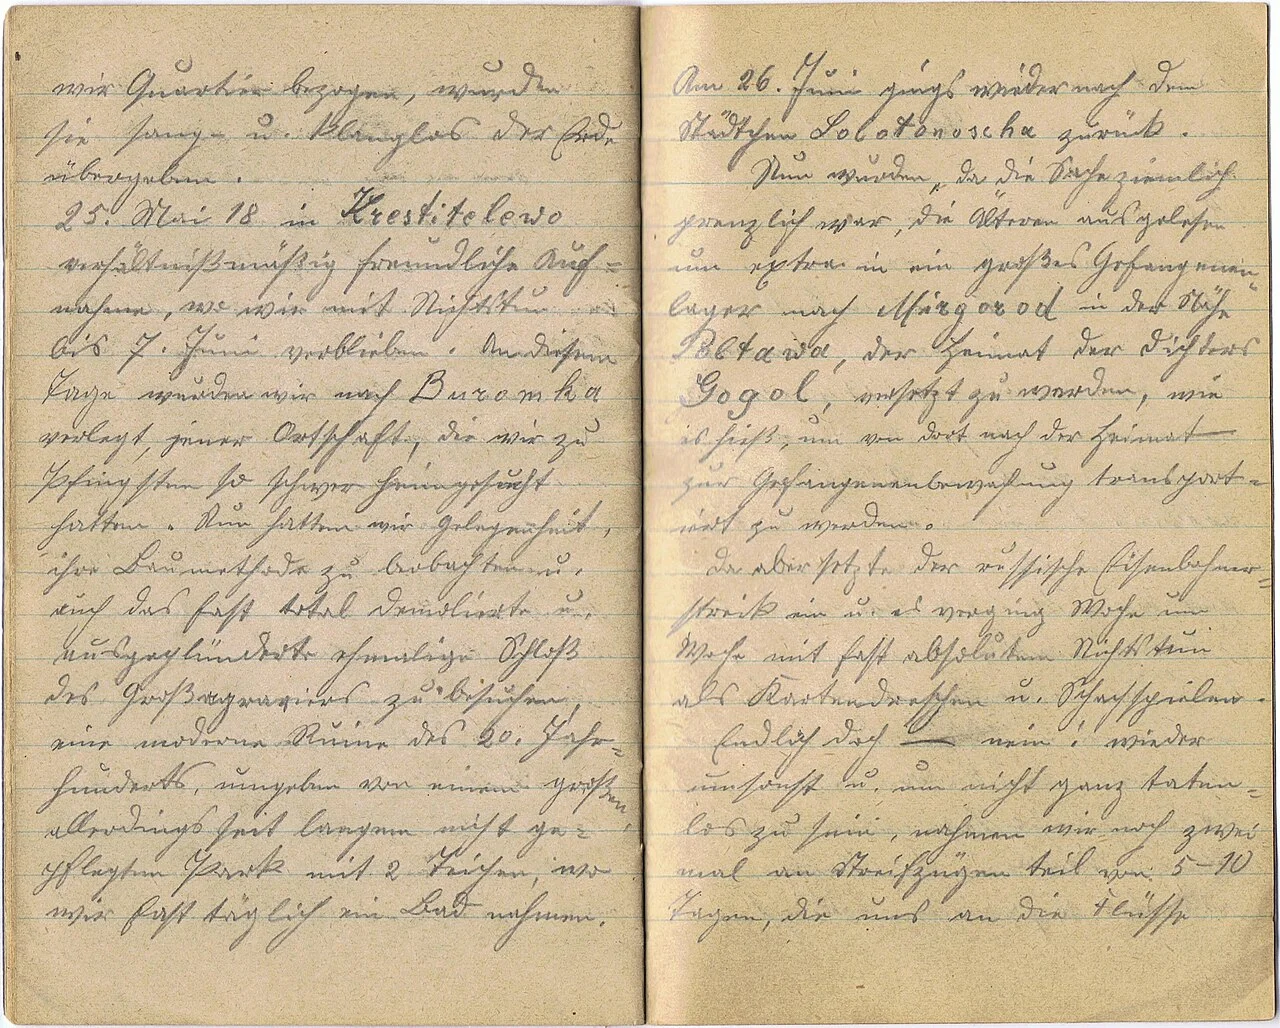 wir Quartier bezogen, wurden
sie sang- u. klanglos der Erde
übergeben.
25. Mai 18 in Krestitelewo
verhältnißmäßig freundliche Auf=
nahme, wo wir mit Nichtstun
bis 7. Juni verblieben. An diesem
Tage wurden wir nach Buromka
verlegt, jener Ortschaft, die wir zu
Pfingsten so schwer heimgesucht
hatten. Nun hatten wir Gelegenheit,
ihre Baumethode zu beobachten u.
auch das fast total demolierte u.
ausgeplünderte ehmalige Schloß
des Großagrariers zu besuchen,
eine moderne Ruine des 20. Jahr=
hunderts, umgeben von einem großen,
allerdings seit langem nicht ge=
pflegten Park mit 2 Teichen, wo
wir fast täglich ein Bad nahmen.
Am 26. Juni gings wieder nach dem
Städtchen Solotonoscha zurück.
Nun wurden, da die Sache ziemlich
brenzlich war, die Älteren ausgelesen
um extra in ein großes Gefangenen=
lager nach Mirgorod in der Nähe
Poltawa, der Heimat der Dichters
Gogol, versetzt zu werden, wie
es hieß, um von dort nach der Heimat
zur Gefangenenbewachung transport=
iert zu werden.
Da aber setzte der russische Eisenbahner=
streik ein u. es verging Woche um
Woche mit fast absolutem Nichtstun
als Kartendreschen u. Schachspielen.
Endlich doch — nein! wieder
umsonst u. um nicht ganz taten=
los zu sein, nahmen wir noch zwei
mal an Streifzügen teil von 5–10
Tagen, die uns an die Flüsse